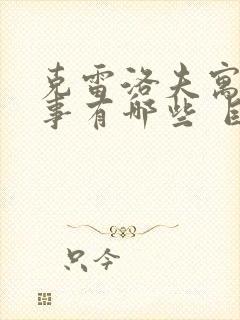 克雷洛夫寓
事有哪些
只今